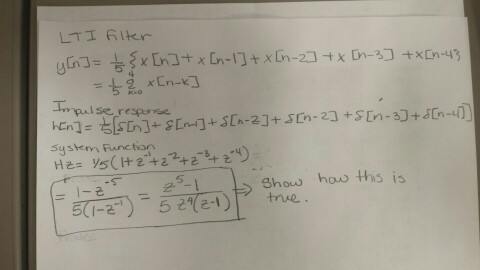 LTI Filter
y[n] = 1/5 {x[n] + x[n-1] + x[n-2] + x[n-3] + x[n-4]}
= 1/5 Σ_{k=0}^{4} x[n-k]
Impulse response
h[n] = 1/5[δ[n] + δ[n-1] + δ[n-2] + δ[n-2] + δ[n-3] + δ[n-4]]
System Function
Hz = 1/5 (1 + z^-1 + z^-2 + z^-3 + z^-4)
= (1 - z^-5) / (5(1 - z^-1)) = (z^5 - 1) / (5 z^4(z-1)) ⇒ Show how this is
true.